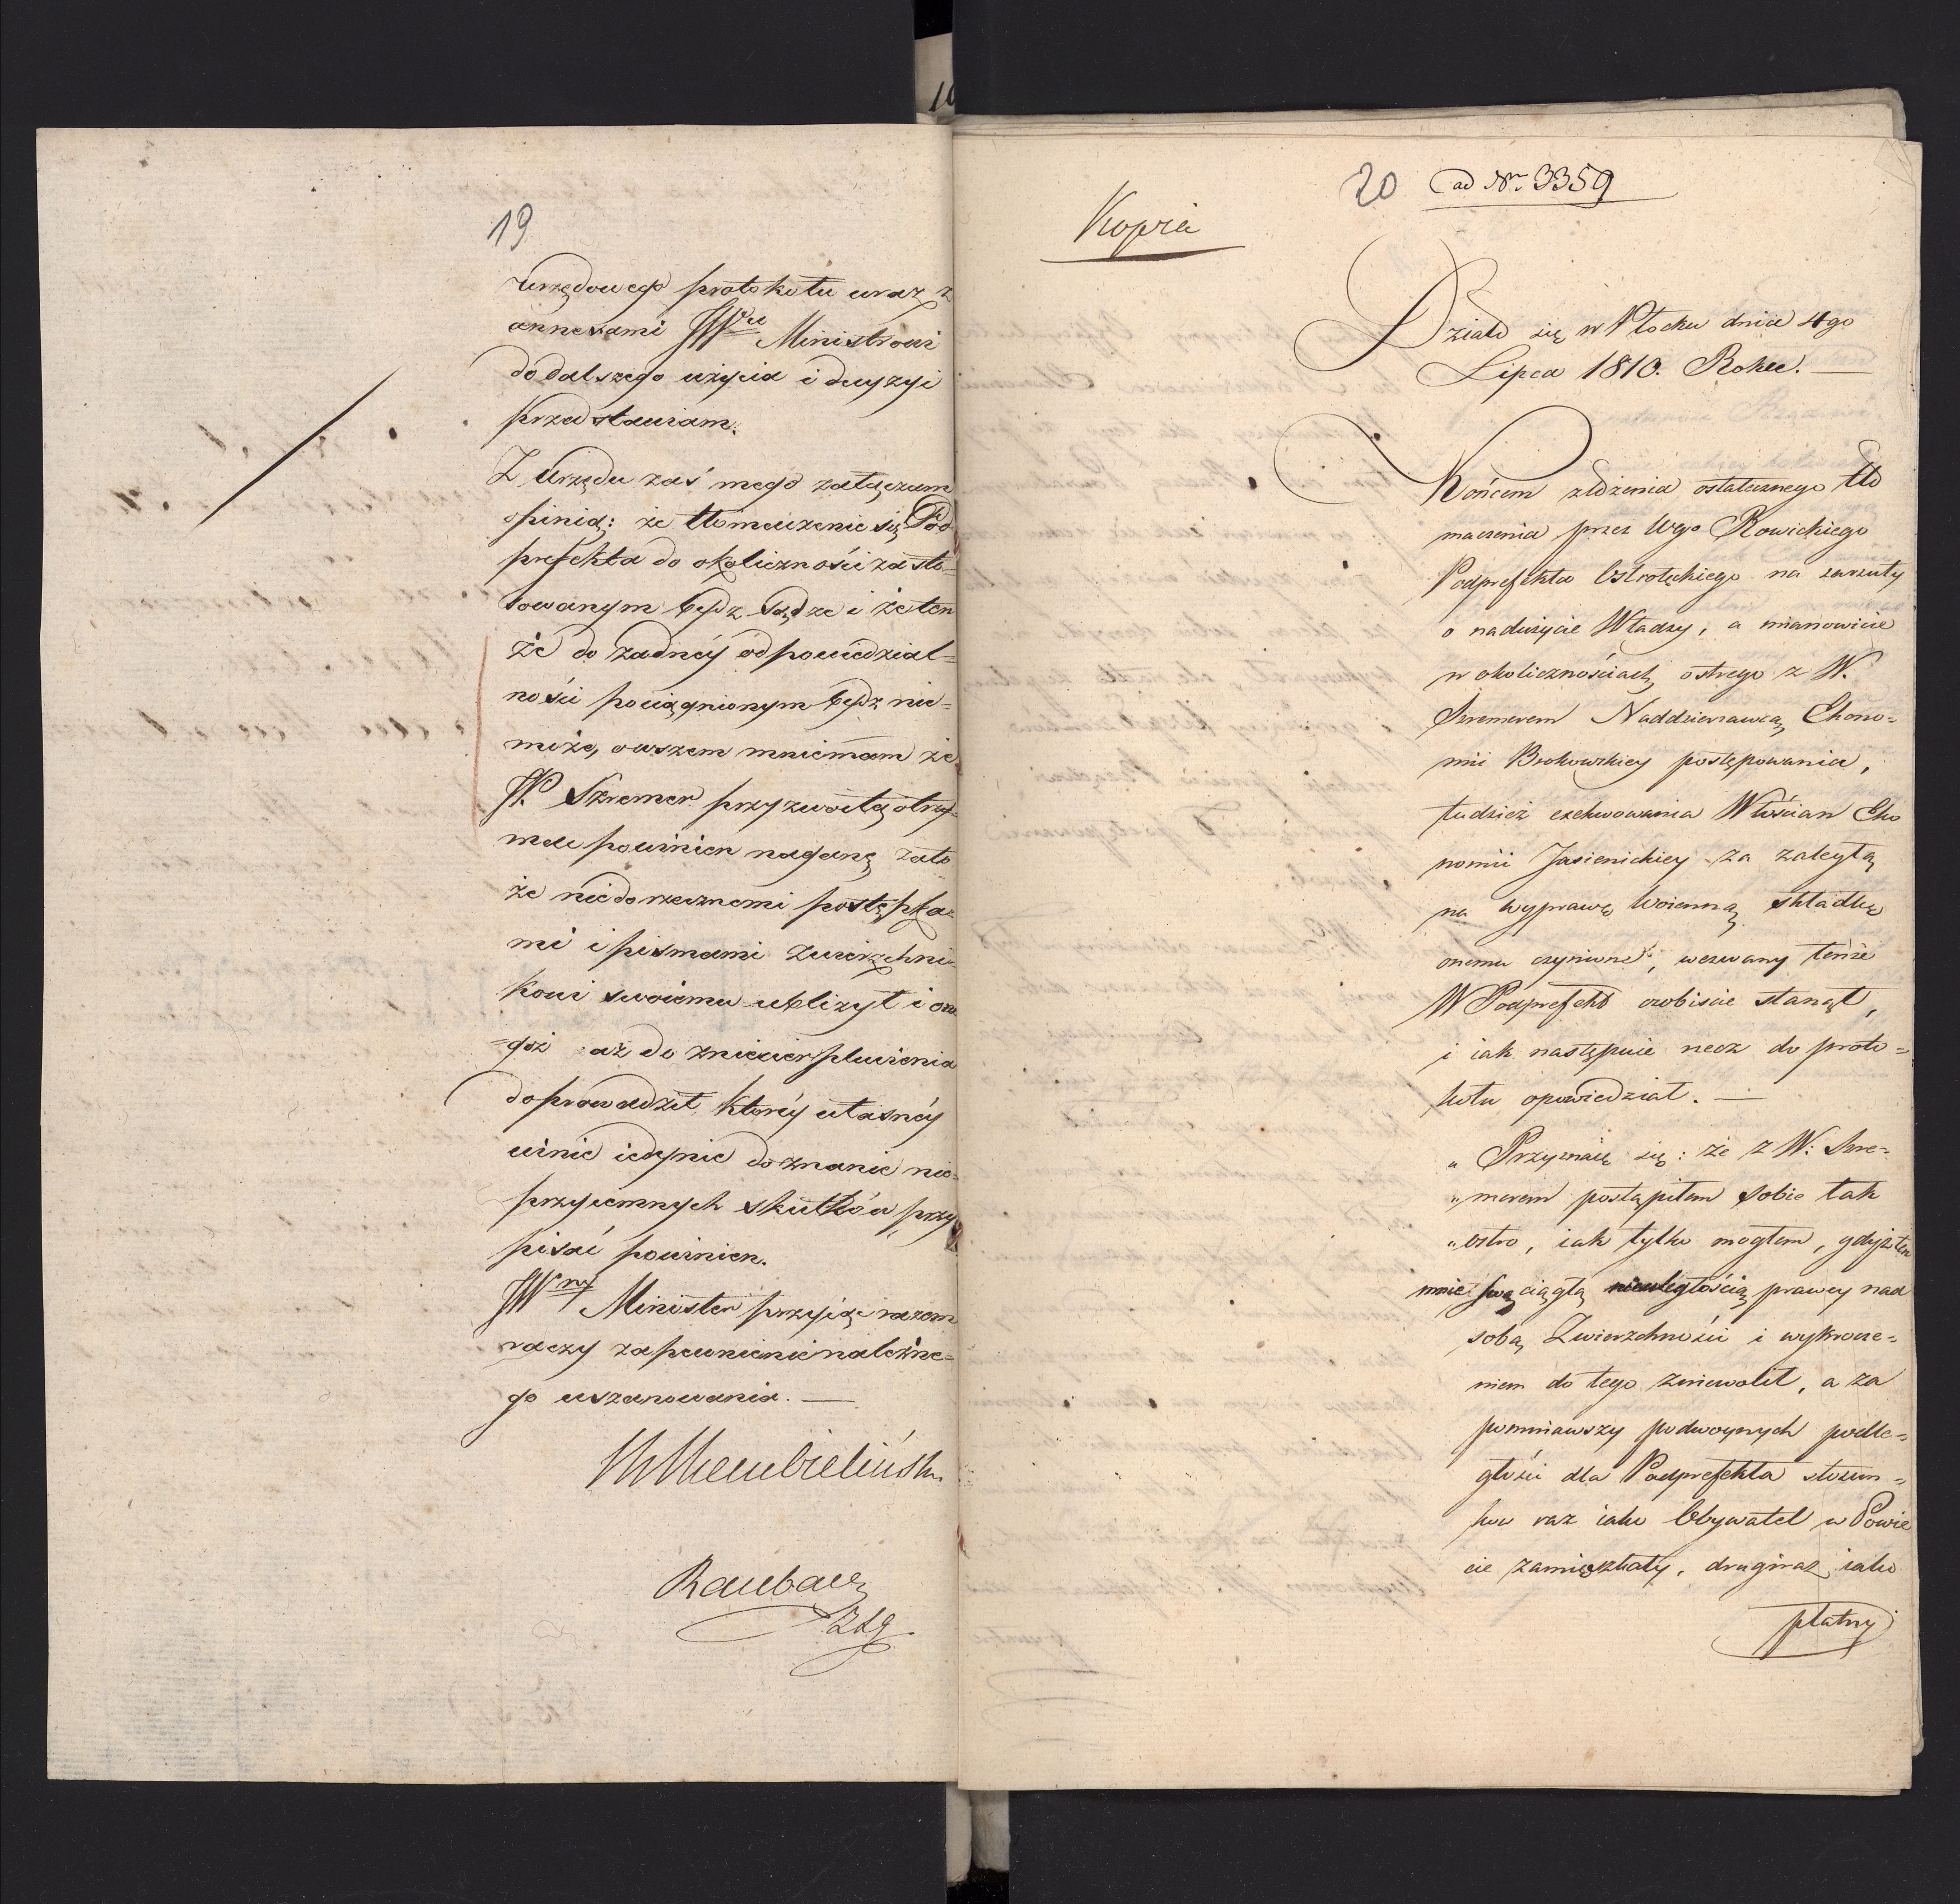 19
urzędowego protokołu wraz z
annexami JWu Ministrowi
do dalszego użycia i decyzyi
przedstawiam.
Z Urzędu zaś mego załączam
opinią: że tłomaczenie się Pod
prefekta do okoliczności zasto=
sowanym bydz sądzę i że ten
że do żadnéy odpowiedzial=
ności pociągnionym bydz nie=
może, owszem mniemam że
JP. Szremer przyzwoitą otrzy=
mać powinien naganę zato
że niedorzecznemi postępka=
mi i pismami Zwierzchni=
kowi swoiemu ubliżył i one
=goż aż do zniecierpliwienia
doprowadził, któréy własnéy
winie iedynie doznanie nie=
przyiemnych skutków przy
pisać powinien.
JWny Minister przyiąć razem
raczy zapewnienie należne=
go uszanowania. —
Rembieliński
Raubach
ZSg
20 ad Nr. 3359
Kopia
Działo się w Płocku dnia 4go
Lipca 1810. Roku. —
Końcem złożenia ostatecznego tło
maczenia przez Wgo Rowickiego
Podprefekta Ostrołęckiego na zarzuty
o nadużycie Władzy, a mianowicie
w okolicznościach ostrego z W.
Szremerem Naddzierzawcą Ekono=
mii Brokowskiey postępowania,
tudzież exekwowania Włościan Eko
nomii Jasienickiey za zaległą
na wyprawę Woienną składkę
onemu czynione, wezwany tenże
W Podprefekt osobiście stanął,
i iak następuie rzecz do proto=
kołu opowiedział. —
„Przyznaię się: że z W: Szre=
„merem postąpiłem sobie tak
„ostro, iak tylko mogłem, gdyż ten
mnie swą ciągłą nieuległością prawey nad
sobą Zwierzchności i wykrocze=
niem do tego zniewolił, a za
pomniawszy podwoynych podle=
głości dla Podprefekta stosun=
ków raz iako Obywatel w Powie
cie zamieszkały, drugiraz iako
płatny